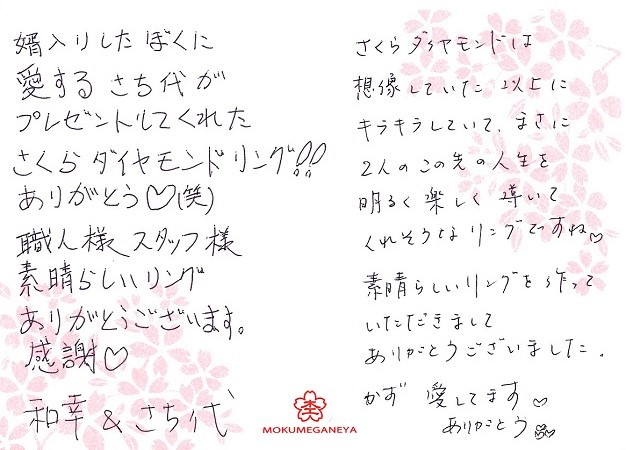 婿入りしたぼくに
愛するさち代が
プレゼントしてくれた
さくらダイヤモンドリング!!
ありがとう♡(笑)
職人様 スタッフ様
素晴らしいリング
ありがとうございます。
感謝♡
和幸 & さち代
さくらダイヤモンドは
想像していた以上に
キラキラしていて、まさに
2人のこの先の人生を
明るく楽しく導いて
くれそうなリングですね♡
素晴らしいリングを作って
いただきまして
ありがとうございました。
かず 愛してます♡
ありがとう
MOKUMEGANEYA